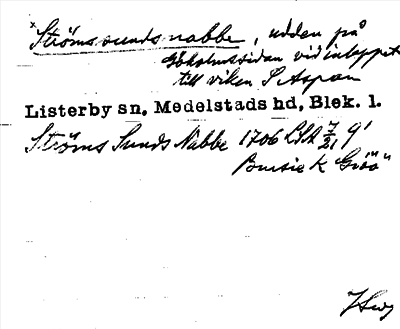 Strömsundsnabbe, udden på
Göholmssidan vid inloppet
till viken S. Aspan
Listerby sn, Medelstads hd, Blek. l.
Ströms Sunds Nabbe 1706 LSA 7/21 9'
K Gröö"